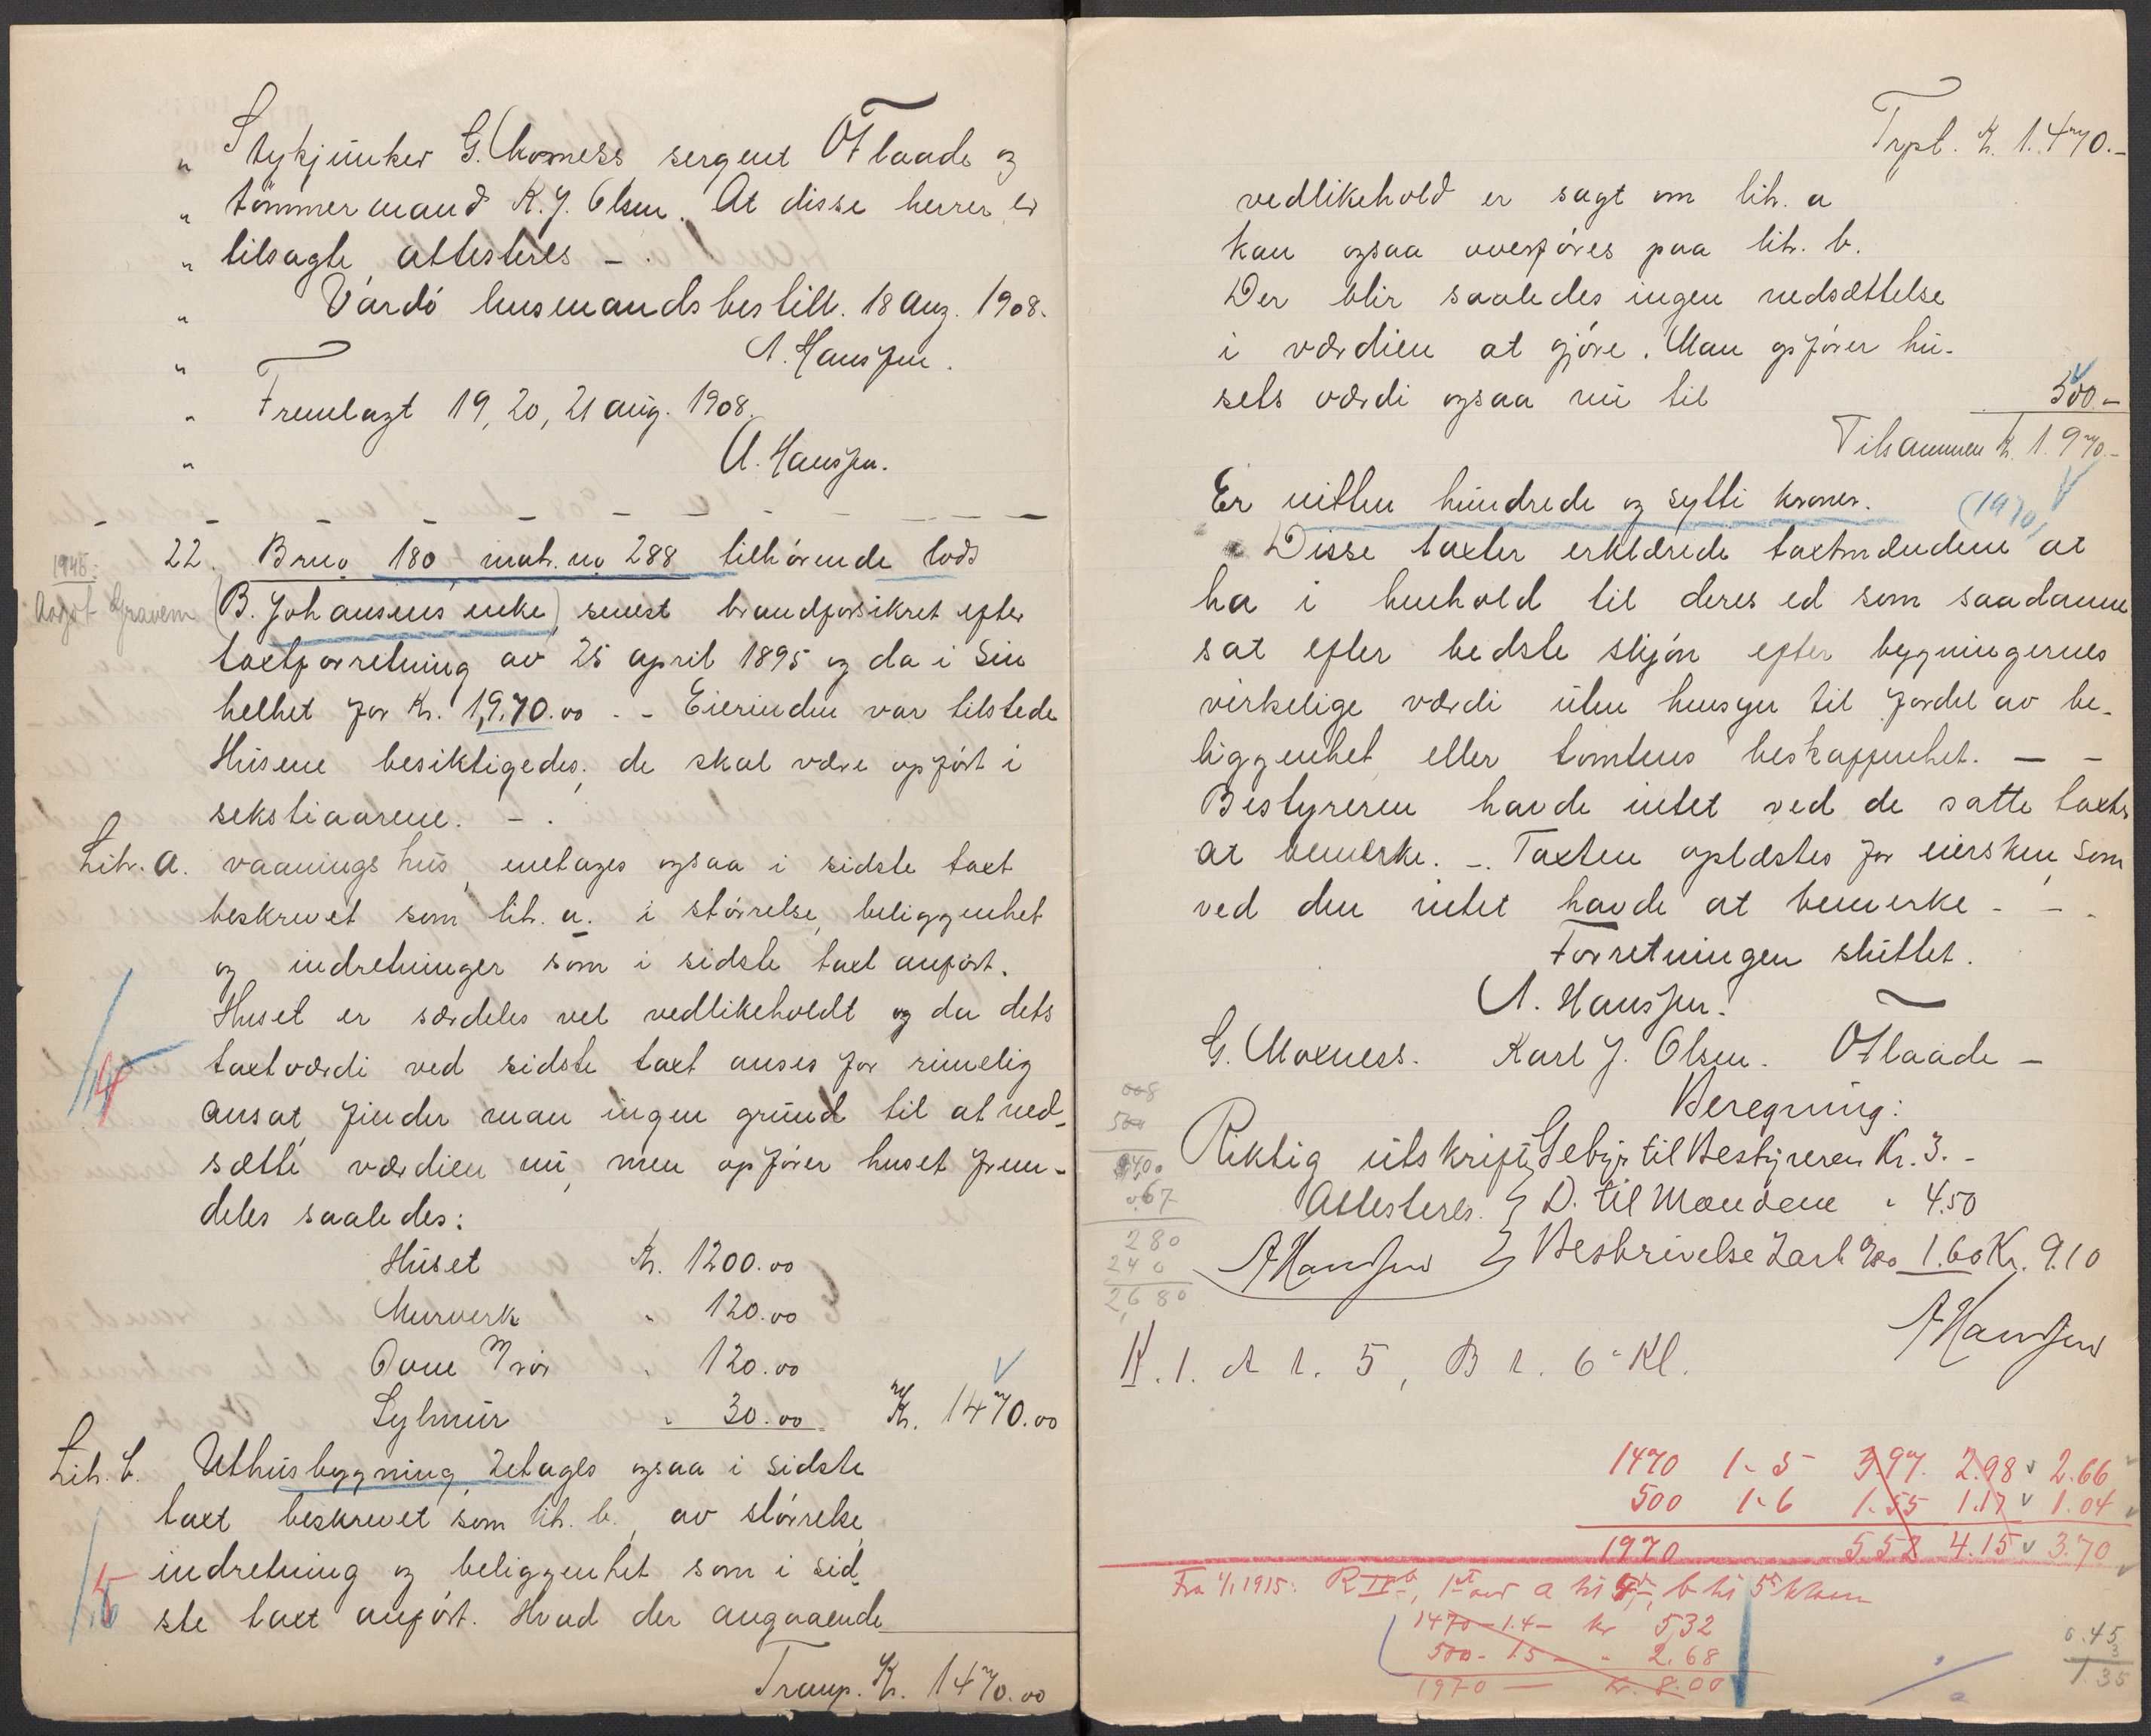 " Stykjunker G. Moxness sergent O Flaade og
" tömmermand K. J. Olsen. At disse herrer er
" tilsagte attesteres –.
" Vardö husmandsbestill. 18 aug. 1908.
" A. Hanssen.
" Fremlagt 19, 20, 21 aug. 1908.
" A. Hanssen.
22. Br.no 180, matr. no 288 tilhörende lods
1946:
August Gravem
(B. Johansens enke) senest brandforsikret efter
taxtforretning av 25 april 1895 og da i sin
helhet for Kr. 1,970.00. – Eierinden var tilstede
Husene besiktigedes, de skal være opfört i
sekstiaarene. –.
Litr. a. vaaningshus, enetages ogsaa i sidste taxt
beskrevet som litr. a. i störrelse, beliggenhet
og indretninger som i sidste taxt anfört.
Huset er særdeles vel vedlikeholdt og da dets
taxtværdi ved sidste taxt anses for rimelig
ansat, finder man ingen grund til at ned-
sætte værdien nu, men opförer huset frem-
deles saaledes:
Huset Kr. 1200.00
Murverk " 120.00
Ovne m rör " 120.00
Sylmur " 30.00 Kr. 1470.00
Litr. b. Uthusbygning, 2etages ogsaa i sidste
taxt beskrevet som litr. b., av störrelse,
indretning og beliggenhet som i sid-
ste taxt anfört. Hvad der angaaende
Transp. Kr. 1470.00
Trpt. Kr. 1.470.–
vedlikehold er sagt om litr. a
kan ogsaa overföres paa litr. b.
Der blir saaledes ingen nedsættelse
i værdien at gjöre. Man opförer hu-
sets værdi ogsaa nu til 500.–
Tilsammen Kr. 1.970.–
Er nitten hundrede og sytti kroner. (1970)
Disse taxter erklærede taxtmændene at
ha i henhold til deres ed som saadanne
sat efter bedste skjön efter bygningernes
virkelige værdi uten hensyn til fordel av be-
liggenhet eller tomtens beskaffenhet. – –
Bestyreren havde intet ved de satte taxter
at bemerke. –. Taxten oplæstes for eiersken, som
ved den intet havde at bemerke – – .
Forretningen sluttet.
A. Hanssen.
G. Moxness. Karl J. Olsen. O Flaade –
Beregning:
Riktig utskrift Gebyr til Bestyreren Kr. 3.–
Attesteres. D. til Mændene " 4.50
AHanssen Beskrivelse 2 ark 1.60 Kr. 9.10
AHanssen
500
0.67
280
240
2,680
K. 1. A 1. 5, B 1. 6 Kl.
1470 1-5 3.97. 2.98 2.66
500 1-6 1.55 1.17 1.04
1970 5.52 4.15 3.70
Fra 1/1 1915:
1470 – 1.4 – kr 5,32
500 – 1.5 – " 2.68
1970 – kr. 8.00
0.45
3
1.35